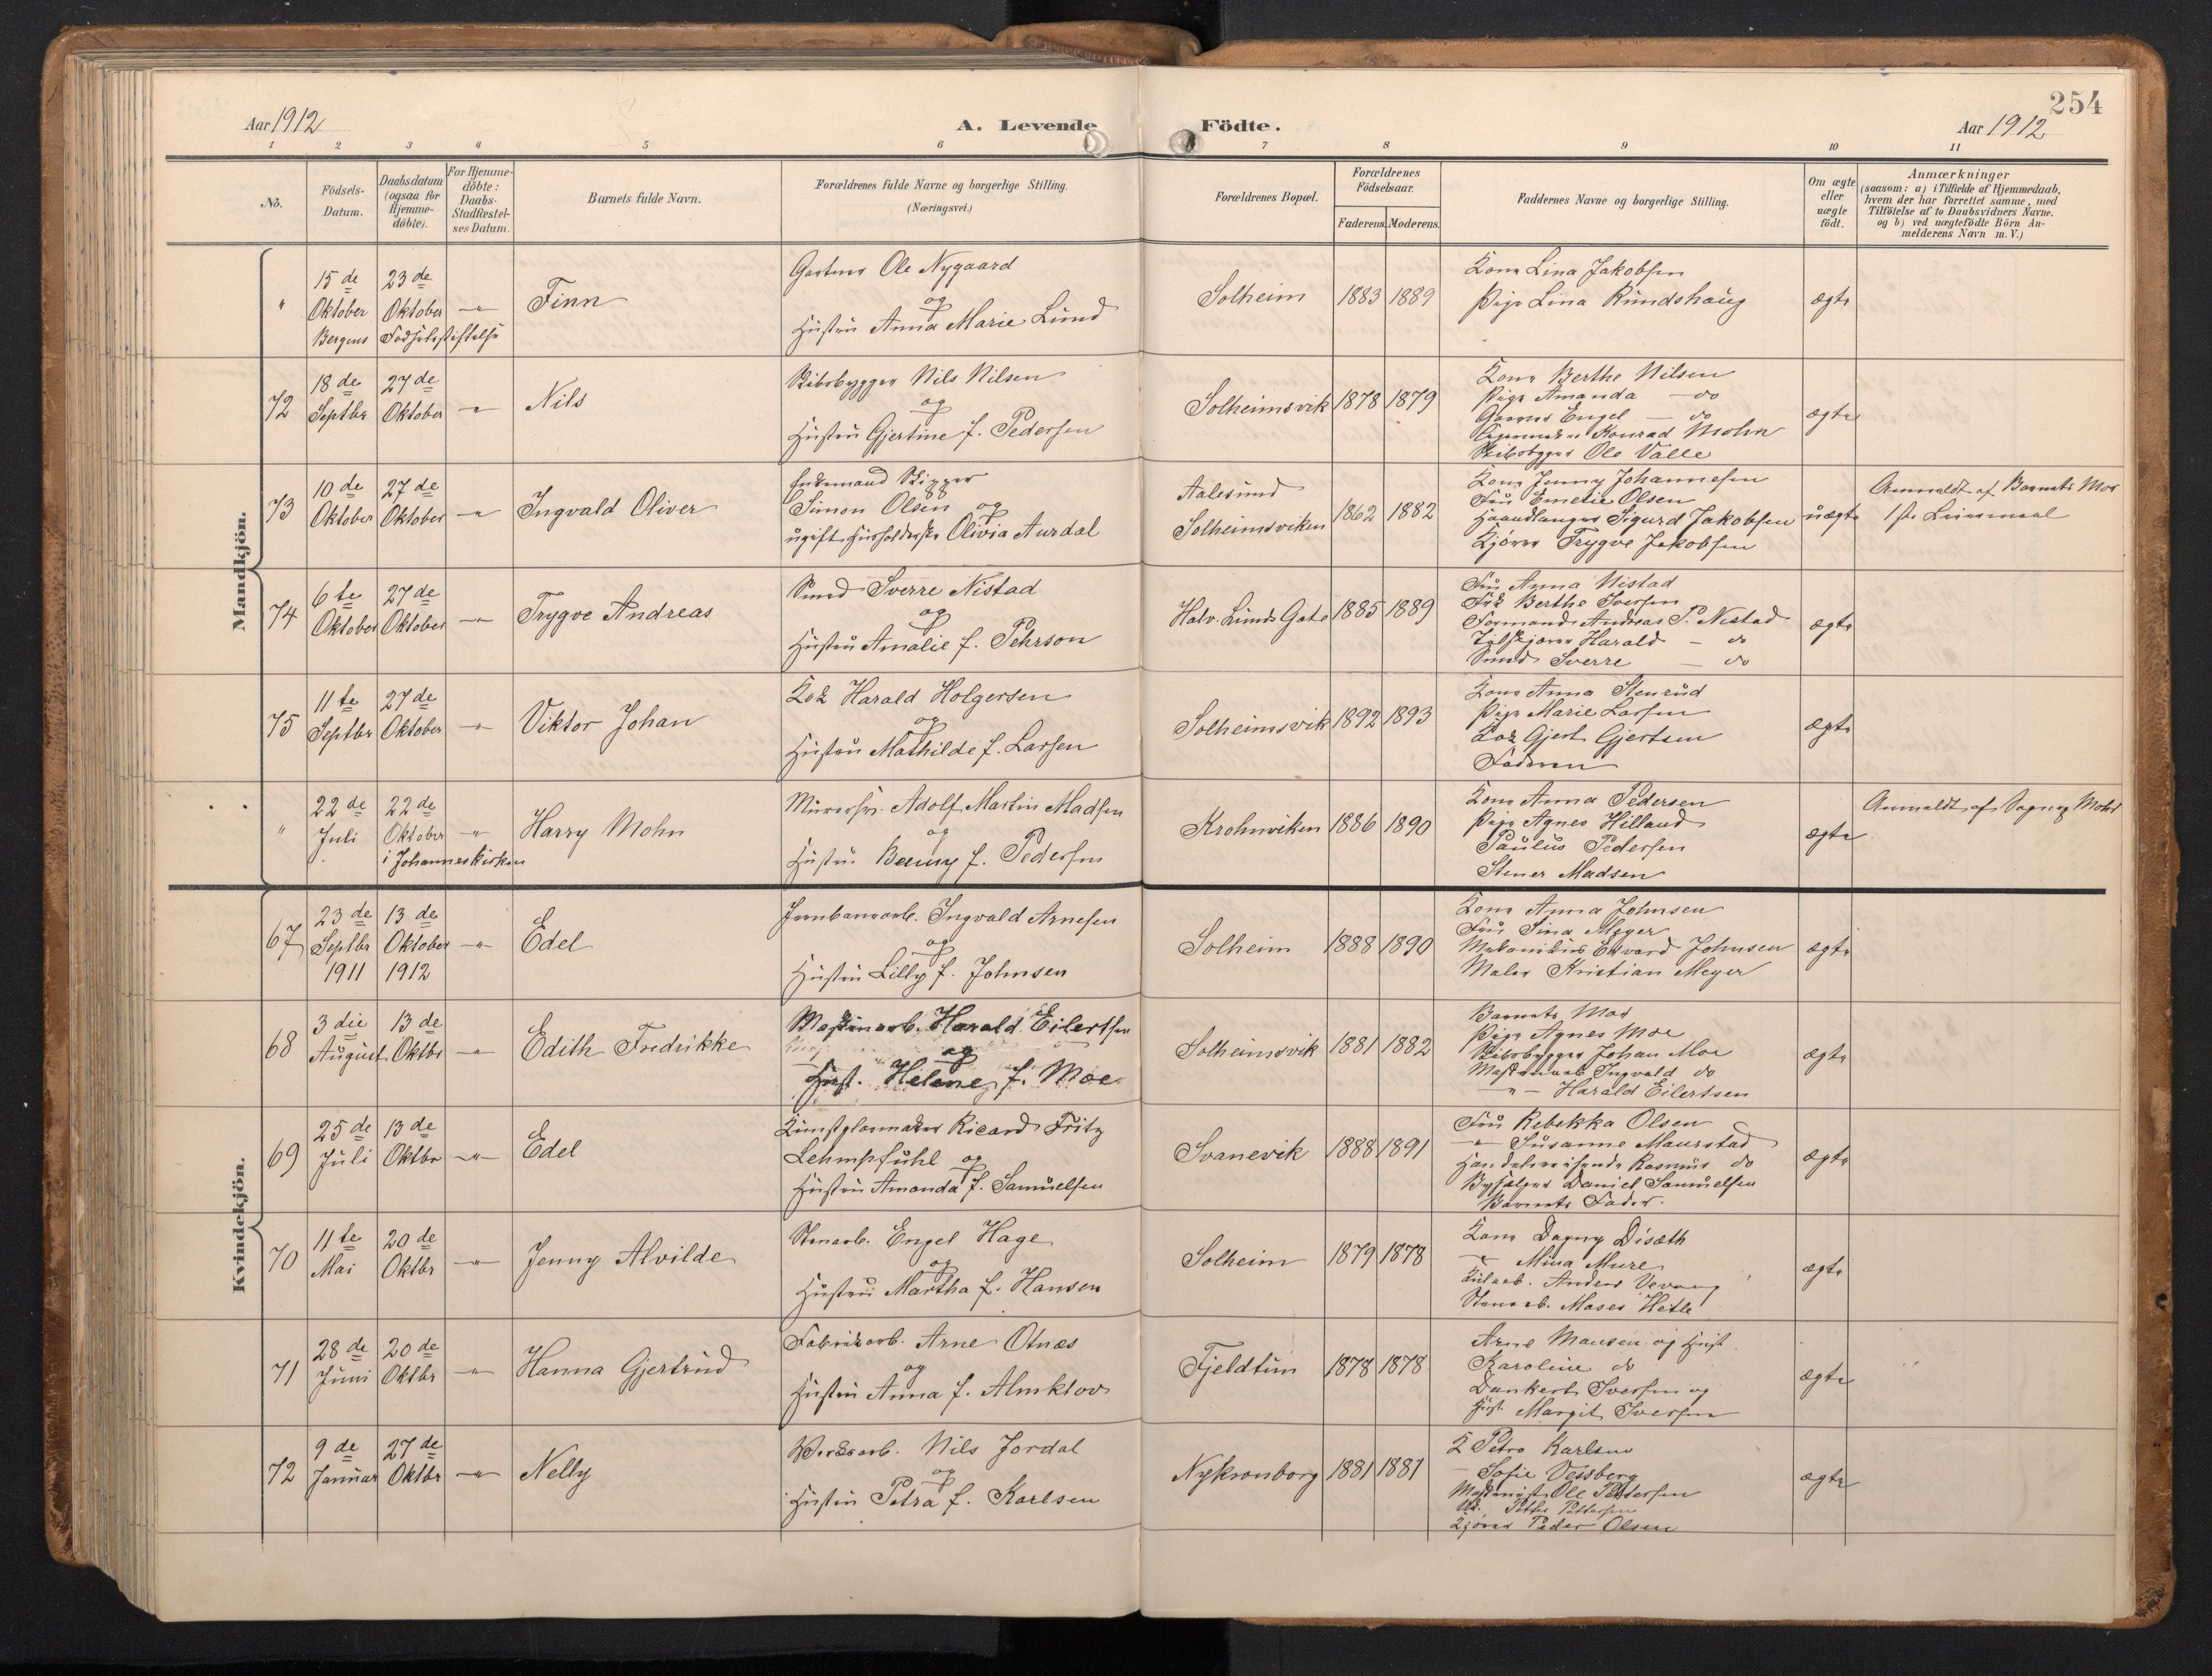 254
Aar 1912
A. Levende Födte.
Aar 1912
1 2 3 4 5 6 7 8 9 10 11
No.
Födsels-Datum.
Daabsdatum (ogsaa for Hjemme-döbte).
For Hjemme-döbte: Daabs-Stadfestel-ses Datum.
Barnets fulde Navn.
Forældrenes fulde Navne og borgerlige Stilling.
(Næringsvei.)
Forældrenes Bopæl.
Forældrenes Födselsaar.
Faderens. Moderens.
Faddernes Navne og borgerlige Stilling.
Om ægte eller uægte födt.
Anmærkninger
(saasom: a) i Tilfælde af Hjemmedaab, hvem der har forrettet samme, med Tilföielse af to Daabsvidners Navne, og b) ved uægtefödte Börn Anmelderens Navn m. V.)
Mandkjön.
" 15de Oktober 23de Oktober -"- Finn
Bergens Fødselsstiftelse
Gartner Ole Nygaard
og
Hustru Anna Marie Lund
Solheim 1883 1889
Kone Lina Jakobsen
Pige Lina Rundshaug
ægte
72 18de Septbr 27de Oktober -"- Nils
Skibsbygger Nils Nilsen
og
Hustru Gjertine f. Pedersen
Solheimsvik 1878 1879
Kone Berthe Nilsen
Pige Amanda - do
Engel - do
Konrad Mohn
Skibsbygger Ole Valle
ægte
73 10de Oktober 27de Oktober -"- Ingvald Oliver
Enkemand Skipper
Simon Olsen og
ugift Husholderske Olivia Aurdal
Aalesund
Solheimsviken
1862 1882
Kone Jenny Johannesen
Fru Emelie Olsen
Haandlanger Sigurd Jakobsen
Kjører Trygve Jakobsen
uægte
Anmeldt af Barnets Mor
1ste Leiermaal
74 6te Oktober 27de Oktober -"- Trygve Andreas
Smed Sverre Nistad
og
Hustru Amalie f. Pehrson
Halv. Lunds Gate 1885 1889
Fru Anna Nistad
Frk Berthe Iversen
Formand Andreas P. Nistad
Harald - do
Smed Sverre - do
ægte
75 11te Septbr 27de Oktober -"- Viktor Johan
Kok Harald Holgersen
og
Hustru Mathilde f. Larsen
Solheimsvik 1892 1893
Kone Anna Stenrud
Pige Marie Larsen
Kok Gjert Gjertsen
Faderen
ægte
" 22de Juli 22de Oktober -"- Harry Mohn
i Johanneskirken
Murersv. Adolf Martin Madsen
og
Hustru Benny f. Pedersen
Krohnviken 1886 1890
Kone Anna Pedersen
Pige Agnes Hilland
Paulus Pedersen
Stener Madsen
ægte
Anmeldt af Sognep Mohn
Kvindekjön.
67 23de Septbr 1911 13de Oktober 1912 -"- Edel
Jernbanearb. Ingvald Arnesen
og
Hustru Lilly f. Johnsen
Solheim 1888 1890
Kone Anna Johnsen
Fru Sina Meyer
Mekanikus Edvard Johnsen
Maler Kristian Meyer
ægte
68 3die August 13de Oktbr -"- Edith Fredrikke
Maskinarb. Harald Eilertsen
og
Hust. Helene f. Moe
Solheimsvik 1881 1882
Barnets Mor
Pige Agnes Moe
Skibsbygger Johan Moe
Maskinarb Ingvald do
-"- Harald Eilertsen
ægte
69 25de Juli 13de Oktbr -"- Edel
Kunstglasmaker Ricard Fritz
Lehmpfuhl og
Hustru Amanda f. Samuelsen
Svanevik 1888 1891
Fru Rebekka Olsen
-"- Susanne Maurstad
Handelsreisende Rasmus do
Daniel Samuelsen
Barnets Fader.
ægte
70 11te Mai 20de Oktbr -"- Jenny Alvilde
Stenarb. Engel Hage
og
Hustru Martha f. Hansen
Solheim 1879 1878
Kone Dagny Disæth
-"- Mina Mure
Anders Vevang
Stenarb. Moses Hetle
ægte
71 28de Juni 20de Oktbr -"- Hanna Gjertrud
Fabrikarb. Arne Otnæs
og
Hustru Anna f. Almklov
Fjeldtun 1878 1878
Arne Monsen og Hust.
Karoline do
Dankert Iversen og
Hust. Margit Iversen
ægte
72 9de Januar 27de Oktbr -"- Nelly
Verksarb. Nils Jordal
og
Hustru Petra f. Karlsen
Nykronborg 1881 1881
K Petra Karlsen
- Sofie Vessberg
Maskinist Ole Pettersen
Pettersen
Kjører Peder Olsen
ægte